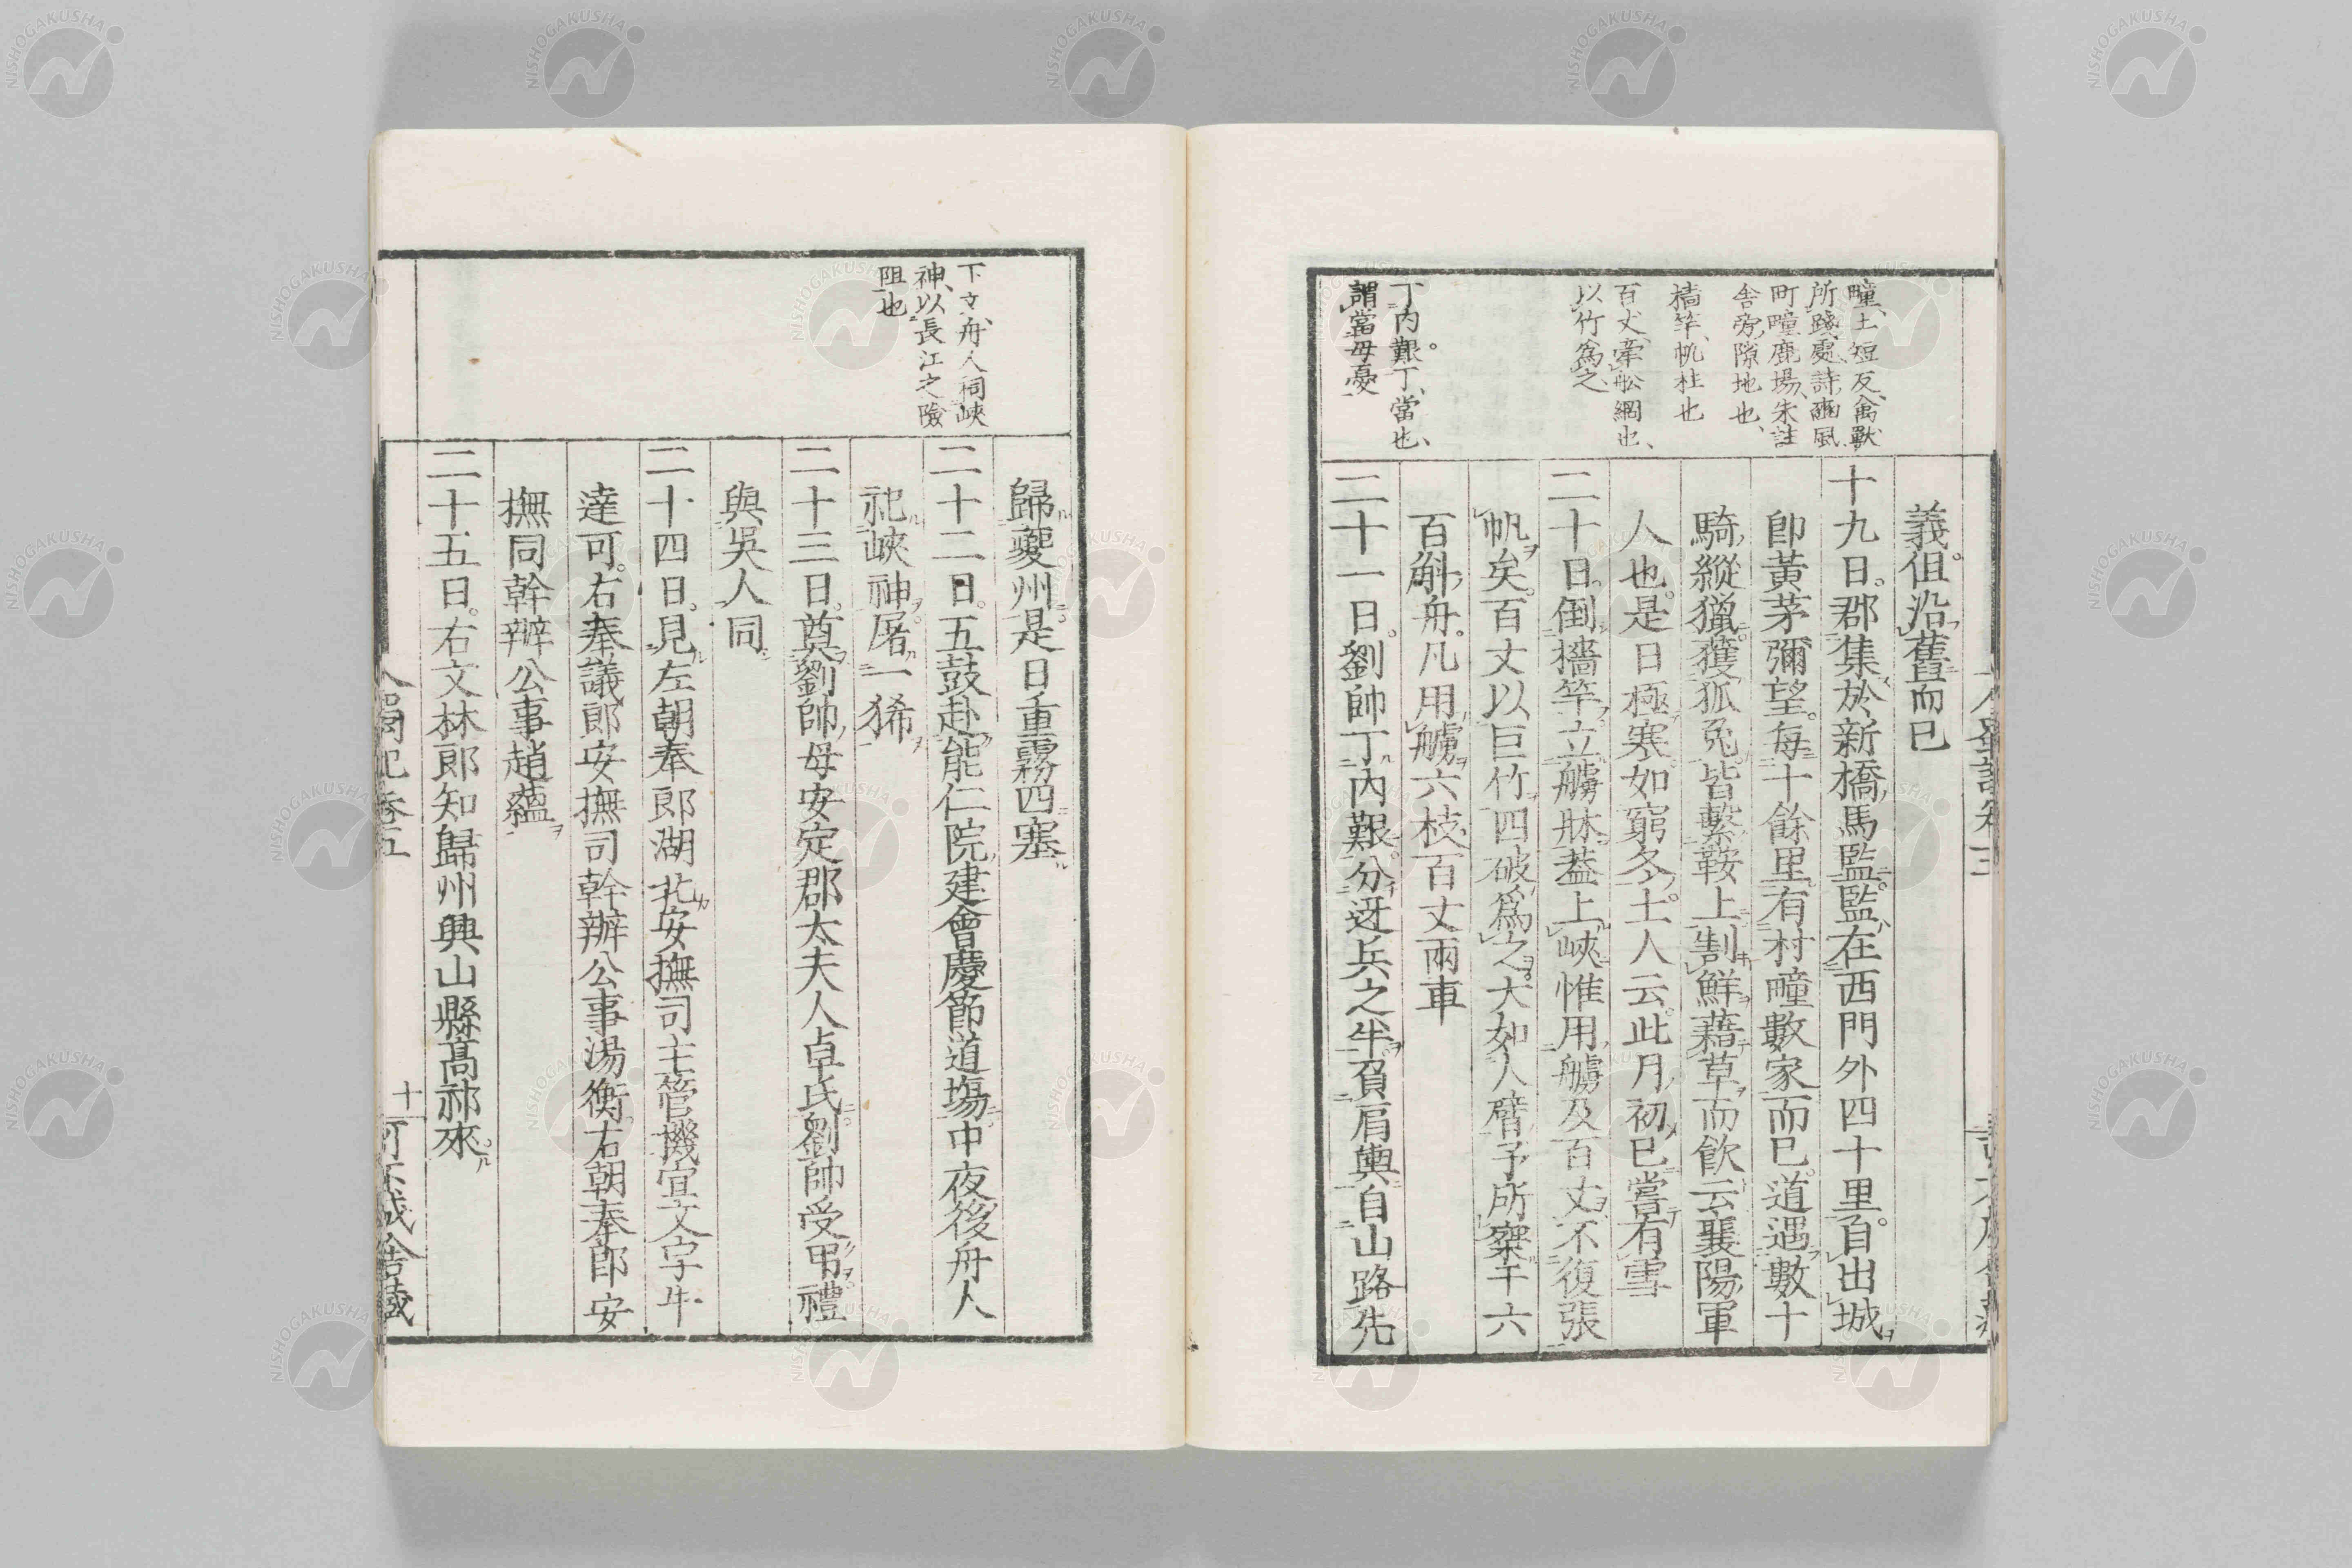 疃、土短反、禽獸
所踐處、詩豳風
町疃鹿場、朱註
舎旁隙地也、
檣竿、帆柱也
百丈、牽舩綱也、
以竹爲之、
丁内艱。丁、當也、
謂當母憂
義徂。沿舊而已
十九日。郡集於新橋馬監。監在西門外四十里。自出城
卽黃茅彌望。每十餘里。有村疃數家而已。道遇數十
騎縱獵。獲狐兎。皆繫鞍上。割鮮藉草而飮。云襄陽軍
人也。是日極寒。如窮冬。土人云。此月初已嘗有雪
二十日。倒檣竿。立艣牀。葢上峽惟用艣及百丈。不復張
帆矣。百丈以巨竹四破爲之。大如人臂。予所乘千六
百斛舟。凡用艣六枝。百丈兩車
二十一日。劉帥丁内艱。分迓兵之半。負肩輿自山路先
歸夔州。是日重霧四塞
二十二日。五鼓赴能仁院。建會慶節道場。中夜後舟人
祀峽神。屠一豨
二十三日。奠劉帥母安定郡太夫人卓氏。劉帥受弔禮
與吳人同
二十四日。見左朝奉郎湖北安撫司主管機宜文字牛
達可。右奉議郎安撫司幹辦公事湯衡。右朝奉郎安
撫同幹辦公事趙蘊
二十五日。右文林郎知歸州興山縣高祁來。
下文、舟人祠峽
神、以長江之險
阻也
入蜀記卷五
十